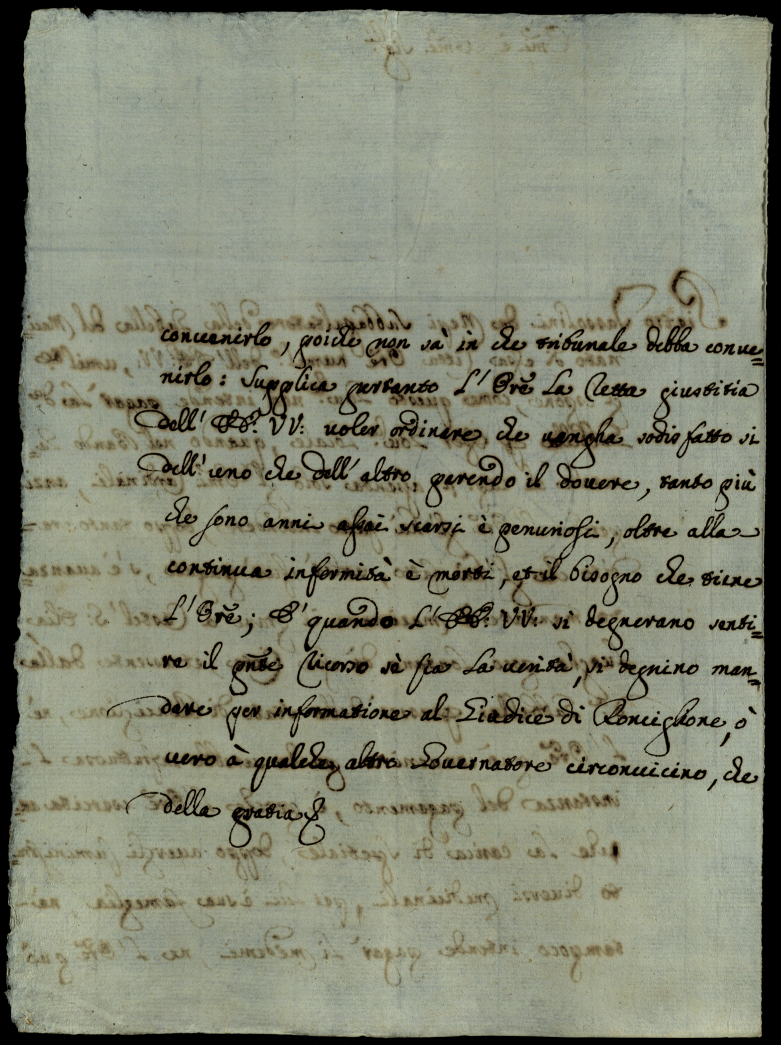 conuenirlo, poiche non sà in che tribunale debba conue=
nirlo: Supplica pertanto L'Ore La retta giustitia
dell' EE. VV: uoler ordinare, che uengha sodisfatto si
dell'uno che dell'altro, parendo il douere, tanto più
che sono anni assai scarsi è penuriosi, oltre alla
continua infermità è morti, et il bisogno che tiene
L'Ore; E' quando L' EE. VV: si degnerano senti=
re il pnte ricorso sè sia La uerità, si degnino man=
dare per informatione al Giudice di Ronciglione, ò
uero à qualche altro Gouernatore circonuicino, che
della gratia &